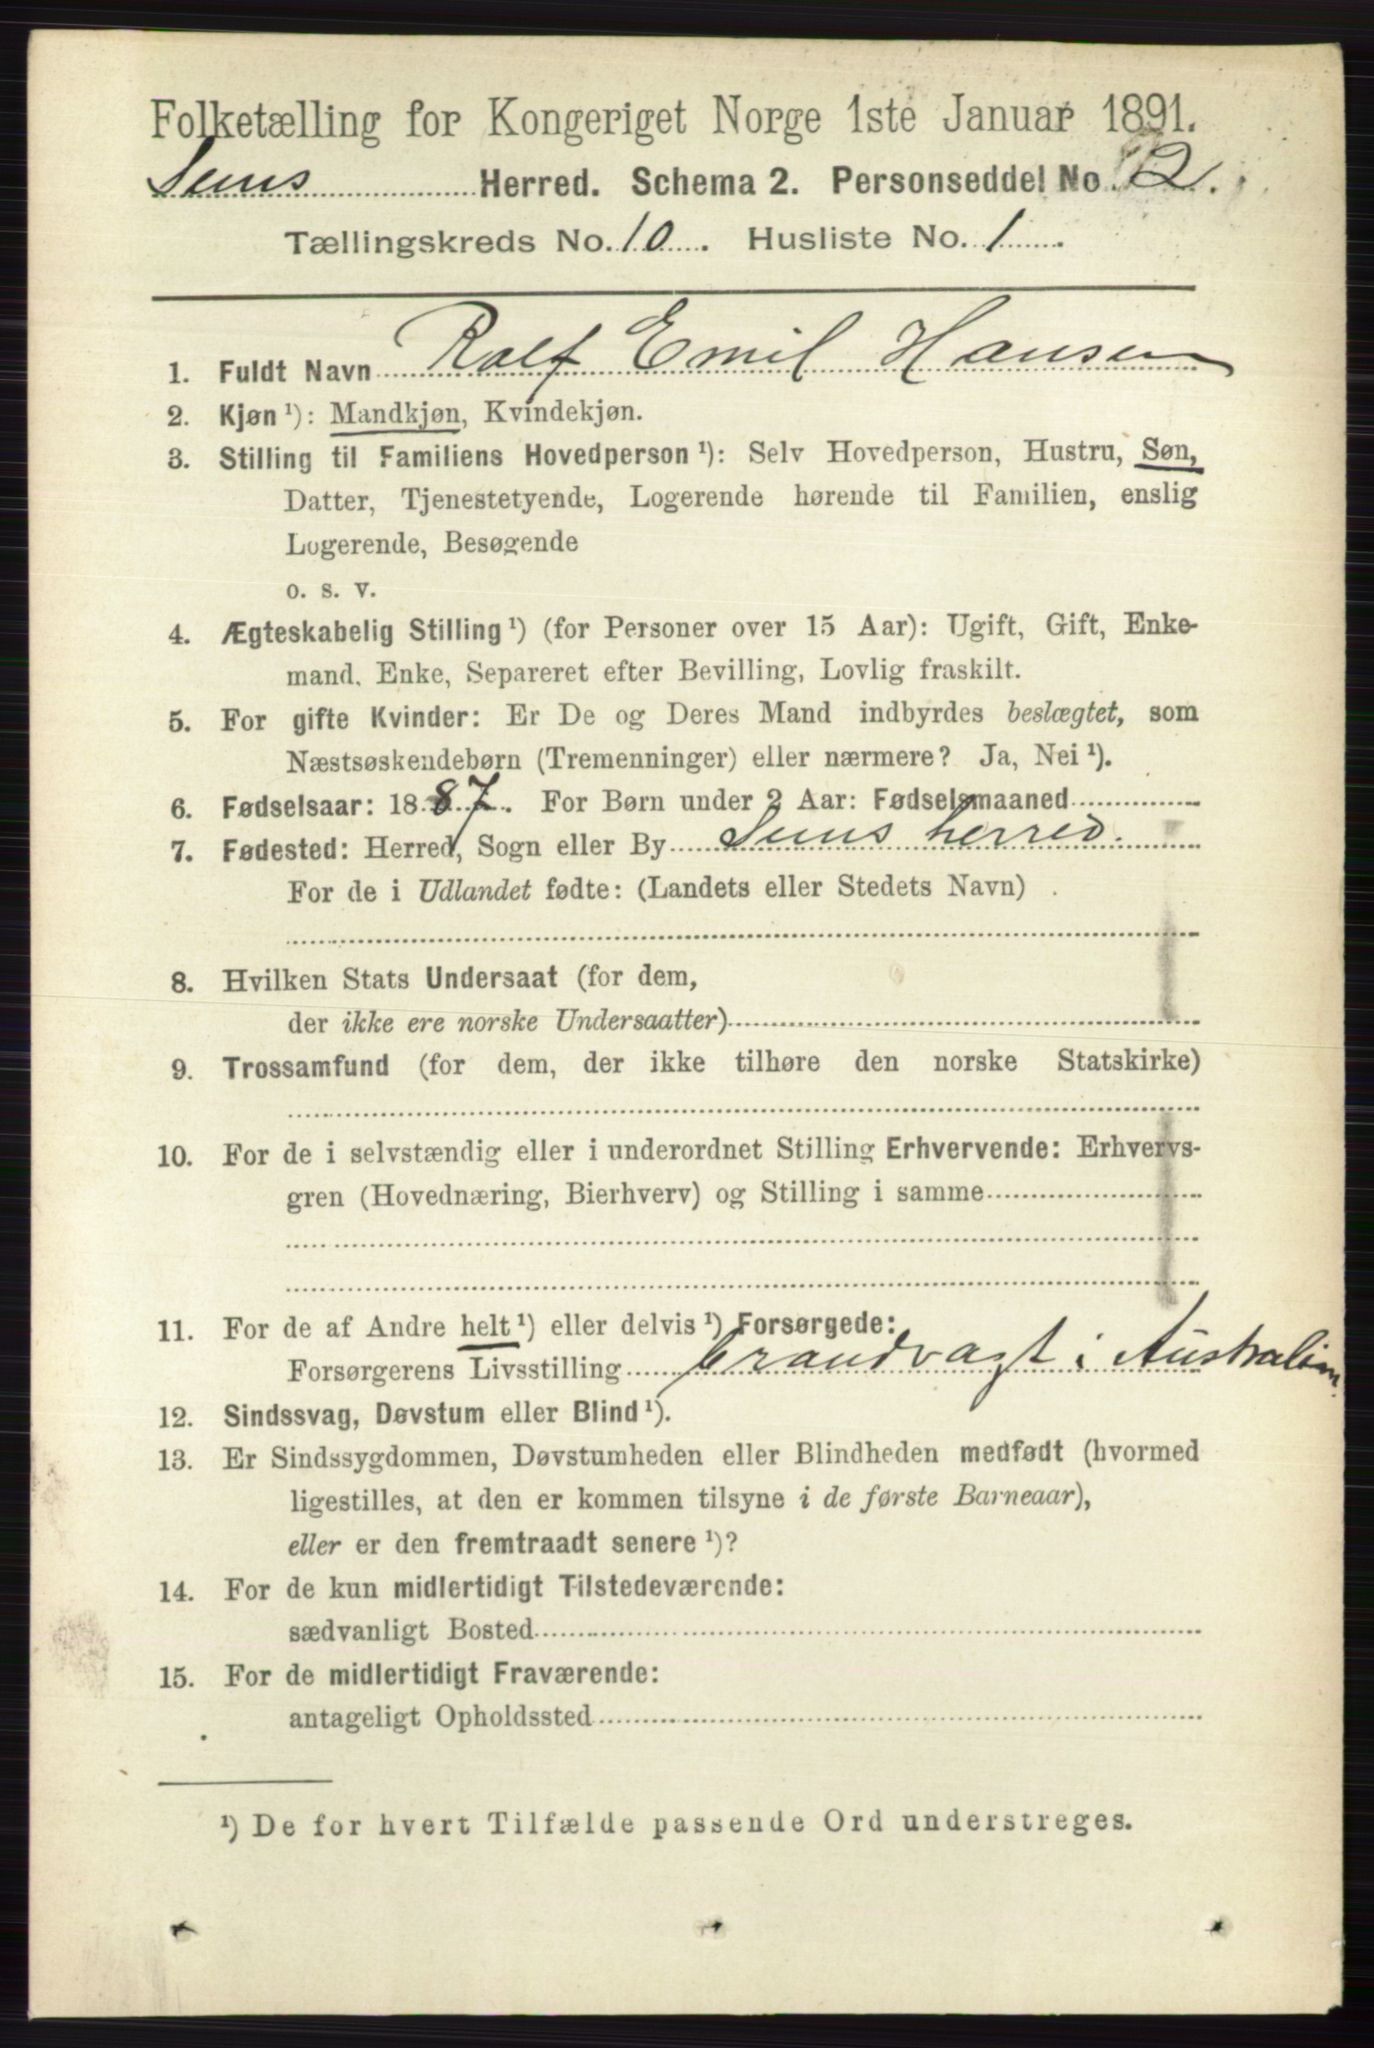 Folketælling for Kongeriget Norge 1ste Januar 1891.
Sems Herred. Schema 2. Personseddel No. 2.
Tællingskreds No. 10. Husliste No. 1.
1. Fuldt Navn Ralf Emil Hansen
2. Kjøn ¹): Mandkjøn, Kvindekjøn.
3. Stilling til Familiens Hovedperson ¹): Selv Hovedperson, Hustru, Søn,
Datter, Tjenestetyende, Logerende hørende til Familien, enslig
Logerende, Besøgende
o. s. v.
4. Ægteskabelig Stilling ¹) (for Personer over 15 Aar): Ugift, Gift, Enke-
mand, Enke, Separeret efter Bevilling, Lovlig fraskilt.
5. For gifte Kvinder: Er De og Deres Mand indbyrdes beslægtet, som
Næstsøskendebørn (Tremenninger) eller nærmere? Ja, Nei ¹).
6. Fødselsaar: 1887. For Børn under 2 Aar: Fødselsmaaned
7. Fødested: Herred, Sogn eller By Sems herred.
For de i Udlandet fødte: (Landets eller Stedets Navn)
8. Hvilken Stats Undersaat (for dem,
der ikke ere norske Undersaatter)
9. Trossamfund (for dem, der ikke tilhøre den norske Statskirke)
10. For de i selvstændig eller i underordnet Stilling Erhvervende: Erhvervs-
gren (Hovednæring, Bierhverv) og Stilling i samme
11. For de af Andre helt ¹) eller delvis ¹) Forsørgede:
Forsørgerens Livsstilling brandvagt i Australien.
12. Sindssvag, Døvstum eller Blind ¹).
13. Er Sindssygdommen, Døvstumheden eller Blindheden medfødt (hvormed
ligestilles, at den er kommen tilsyne i de første Barneaar),
eller er den fremtraadt senere ¹)?
14. For de kun midlertidigt Tilstedeværende:
sædvanligt Bosted
15. For de midlertidigt Fraværende:
antageligt Opholdssted
¹) De for hvert Tilfælde passende Ord understreges.